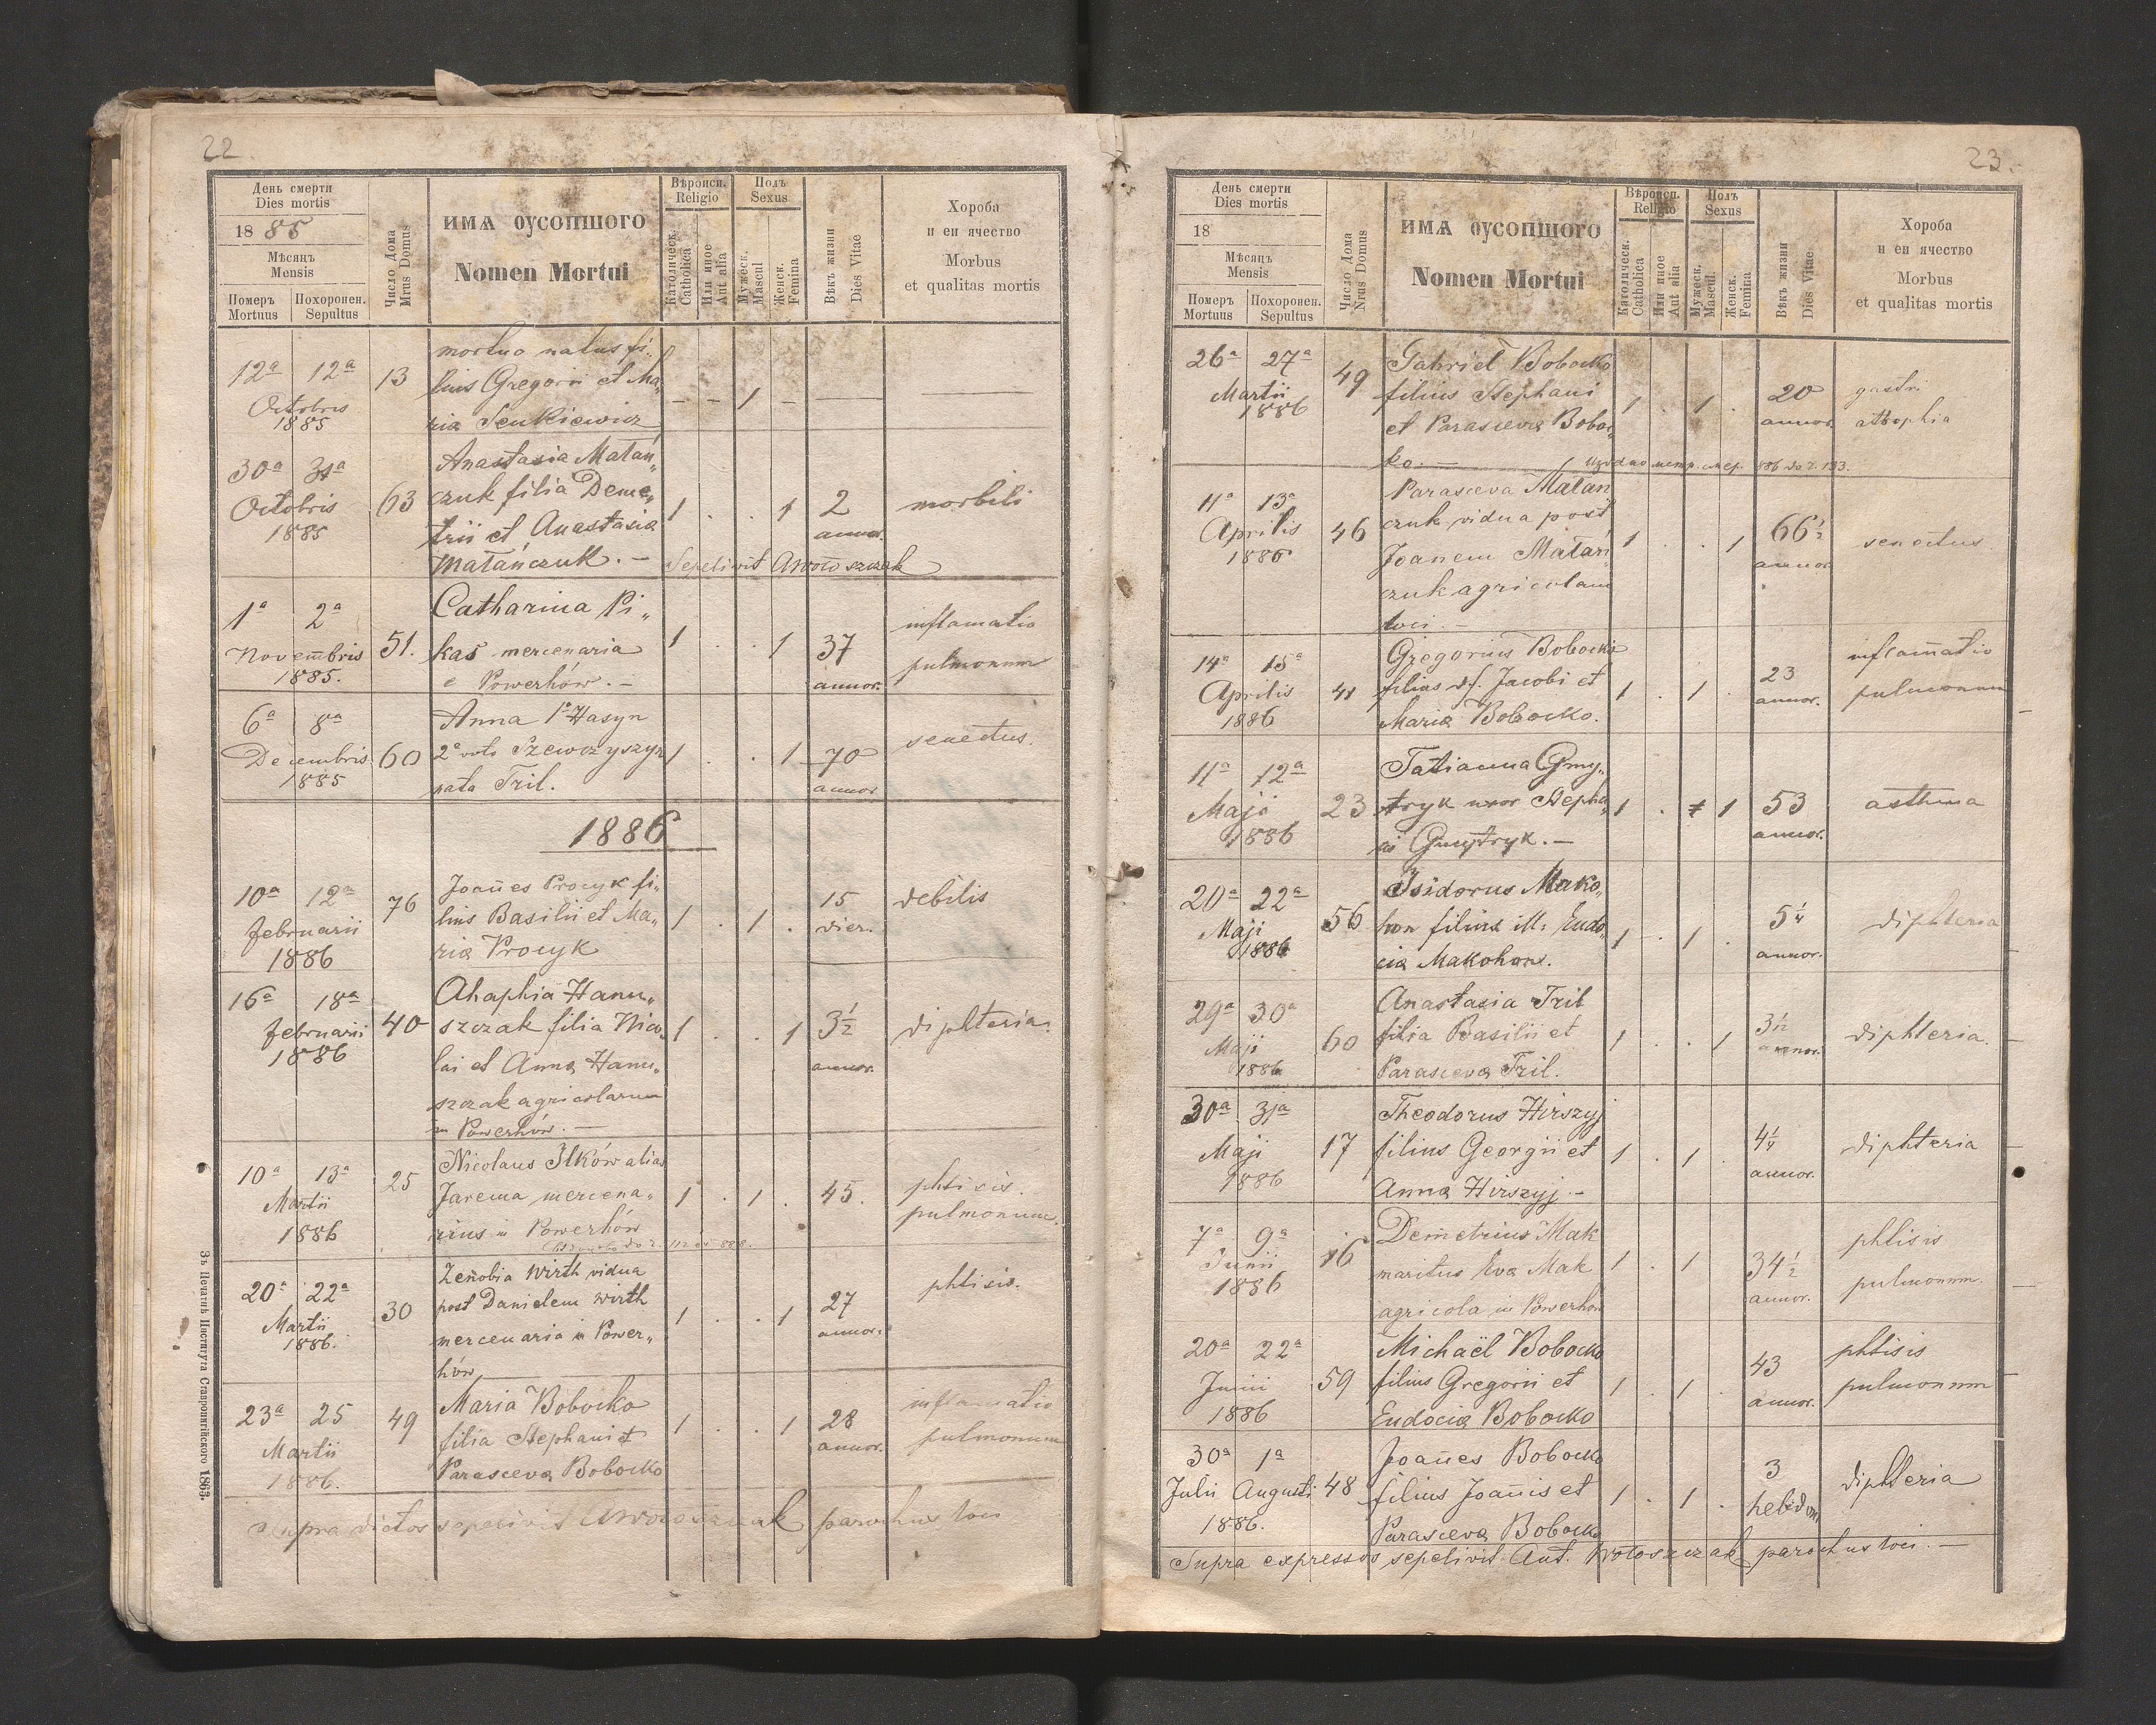 22.
День смерти
Dies mortis
1885
Мѣсяцъ
Mensis
Померъ
Mortuus
Похоронен.
Sepultus
Число Дома
Mrus Domus
ИМѦ ОУСОПШОГО
Nomen Mortui
Вѣроисп.
Religio
Католическ.
Catholica
Или иное
Aut alia
Полъ
Sexus
Мужеск.
Mascul
Женск.
Femina
Вѣкъ жизни
Dies Vitae
Хороба
и еи ячество
Morbus
et qualitas mortis
12ª 12ª
Octobris
1885
13
mortuo natus fi„
lius Gregorii et Ma„
ria Senkiewicz
- - 1 -
30ª 31ª
Octobris
1885
63
Anastasia Matań„
czuk filia Deme„
trii et Anastasia
Matańczuk. –
1 . . 1
2
annor.
morbili
Sepelivit AWołoszczak
1ª 2ª
Novembris
1885.
51.
Catharina Pi„
kas mercenaria
e Powerhów. –
1 . . 1
37
annor.
inflamatio
pulmonum
6ª 8ª
Decembris
1885
60
Anna 1º Hasyn
2º voto Szewczyszyn
nata Tril.
1 . . 1
70
annor
senectus.
1886
10ª 12ª
februarii
1886
76
Joañes Procyk fi„
lius Basilii et Ma„
ria Procyk
1 . 1 .
15
dier.
debilis
16ª 18ª
februarii
1886
40
Ahaphia Hanu„
szczak filia Nico„
lai et Anna Hanu„
szczak agricolarum
in Powerhów. –
1 . . 1
3½
annor.
diphteria.
10ª 13ª
Martii
1886
25
Nicolaus Ilków alias
Jarema mercena„
rius in Powerhów
1 . 1 .
45.
phtisis.
pulmonum.
20ª 22ª
Martii
1886.
30
Zenobia Wirth vidua
post Danielem Wirth
mercenaria in Power„
hów
1 . . 1
27
annor.
phtisis.
23ª 25
Martii
1886.
49
Maria Bobocko
filia Stephani et
Parasceva Bobocko
1 . . 1
28
annor.
inflamatio
pulmonum
Supra dictos sepelivit AWołoszczak parochus loci
Зъ Печатнѣ Института Ставропигійского 1863.
23.
День смерти
Dies mortis
18
Мѣсяцъ
Mensis
Померъ
Mortuus
Похоронен.
Sepultus
Число Дома
Nrus Domus
ИМѦ ОУСОПШОГО
Nomen Mortui
Вѣроисп.
Religio
Католическ.
Catholica
Или иное
Aut alia
Полъ
Sexus
Мужеск.
Mascul.
Женск.
Femina
Вѣкъ жизни
Dies Vitae
Хороба
и еи ячество
Morbus
et qualitas mortis
26ª 27ª
Martii
1886
49
Gabriel Bobocko
filius Stephani
et Parasceva Boboc„
ko. –
1 . 1 .
20
annor.
gastr.
attrophia
11ª 13ª
Aprilis
1886
46
Parasceva Matań
czuk vidua post
Joanem Matań
czuk agricolam
loci. –
1 . . 1
66½
annor
senectus
14ª 15ª
Aprilis
1886
41
Gregorius Bobocko
filius df. Jacobi et
Maria Bobocko.
1 . 1 .
23
annor.
inflam̄atio
pulmonum
11ª 12ª
Maji
1886
23
Tatianna Gmy„
tryk uxor Stepha„
ni Gmytryk. –
1 . 1
53
annor.
asthma
20ª 22ª
Maji
1886
56
Isidorus Mako„
hon filius ill. Eudo„
cia Makohon.
1 . 1 .
5¼
annor.
diphteria
29ª 30ª
Maji
1886
60
Anastasia Tril
filia Basilii et
Parasceva Tril.
1 . . 1
3½
annor.
diphteria.
30ª 31ª
Maji
1886
17
Theodorus Hirszyj
filius Georgii et
Anna Hirszyj –
1 . 1 .
4¼
annor.
diphteria
7ª 9ª
Junii
1886
16
Demetrius Mak
maritus Eva Mak
agricola in Powerhow
1 . 1
34½
annor.
phtisis
pulmonum.
20ª 22ª
Junii
1886
59
Michaël Bobocko
filius Gregorii et
Eudocia Bobocko
1 . 1 .
43
annor.
phtisis
pulmonum
30ª 1ª
Julii Augusti
1886.
48
Joañes Bobocko
filius Joañis et
Parasceva Bobocko
1 . 1 .
3
hebdom.
diphteria
Supra expressos sepelivit Ant. Wołoszczak parochus loci. –